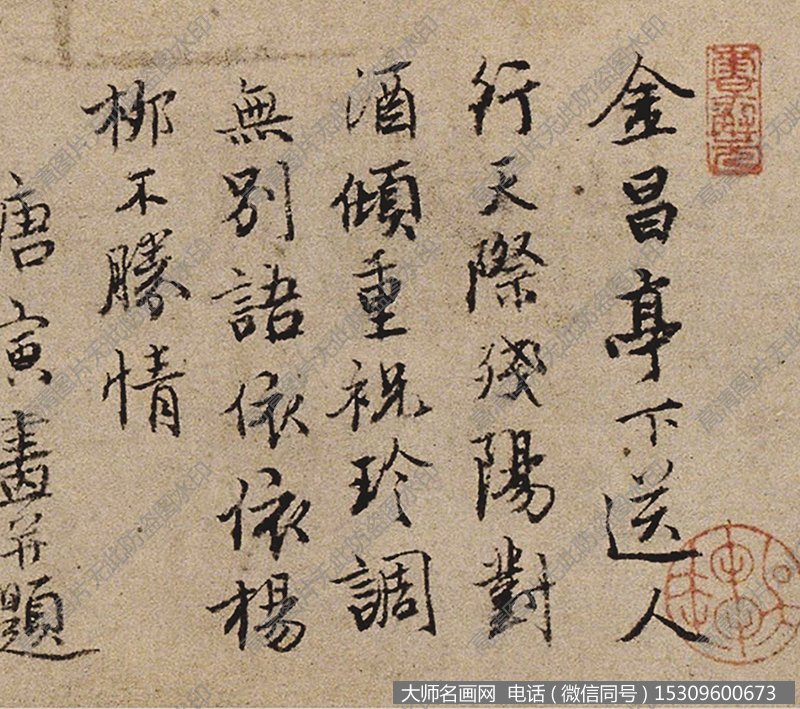 金昌亭下送人
行天際殘陽對
酒傾重祝珍調
無別語依依楊
柳不勝情
唐寅畫并題
大师名画网 电话（微信同号）15309600673